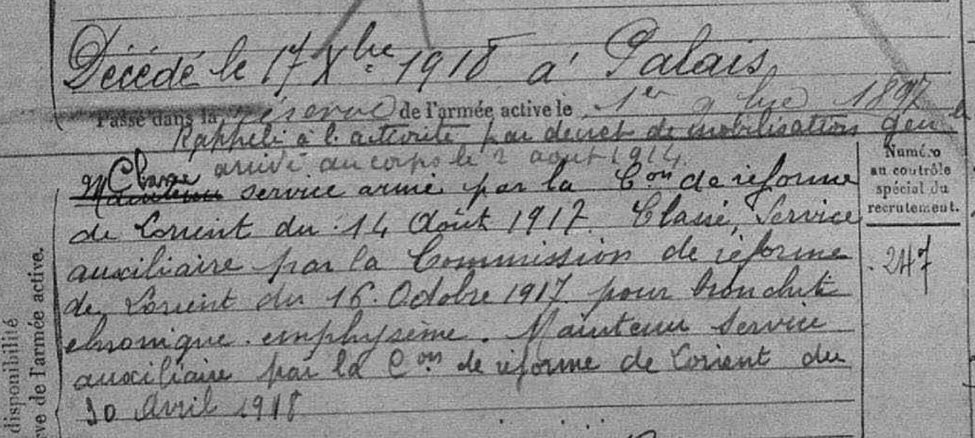 Décédé le 17 Xbre 1918 à Palais
Passé dans la réserve de l'armée active le 1er 9bre 1897
Rappelé à l'activité par décret de mobilisation génle
arrivé au corps le 2 août 1914.
Classé
Maintenu service armé par la Con de réforme
de Lorient du 14 Août 1917. Classé, Service
auxiliaire par la Commission de réforme
de Lorient du 16 Octobre 1917 pour bronchite
chronique emphysème. Maintenu Service
auxiliaire par la Con de réforme de Lorient du
30 Avril 1918
Numéro
au contrôle
spécial du
recrutement.
247
disponibilité
rve de l'armée active.